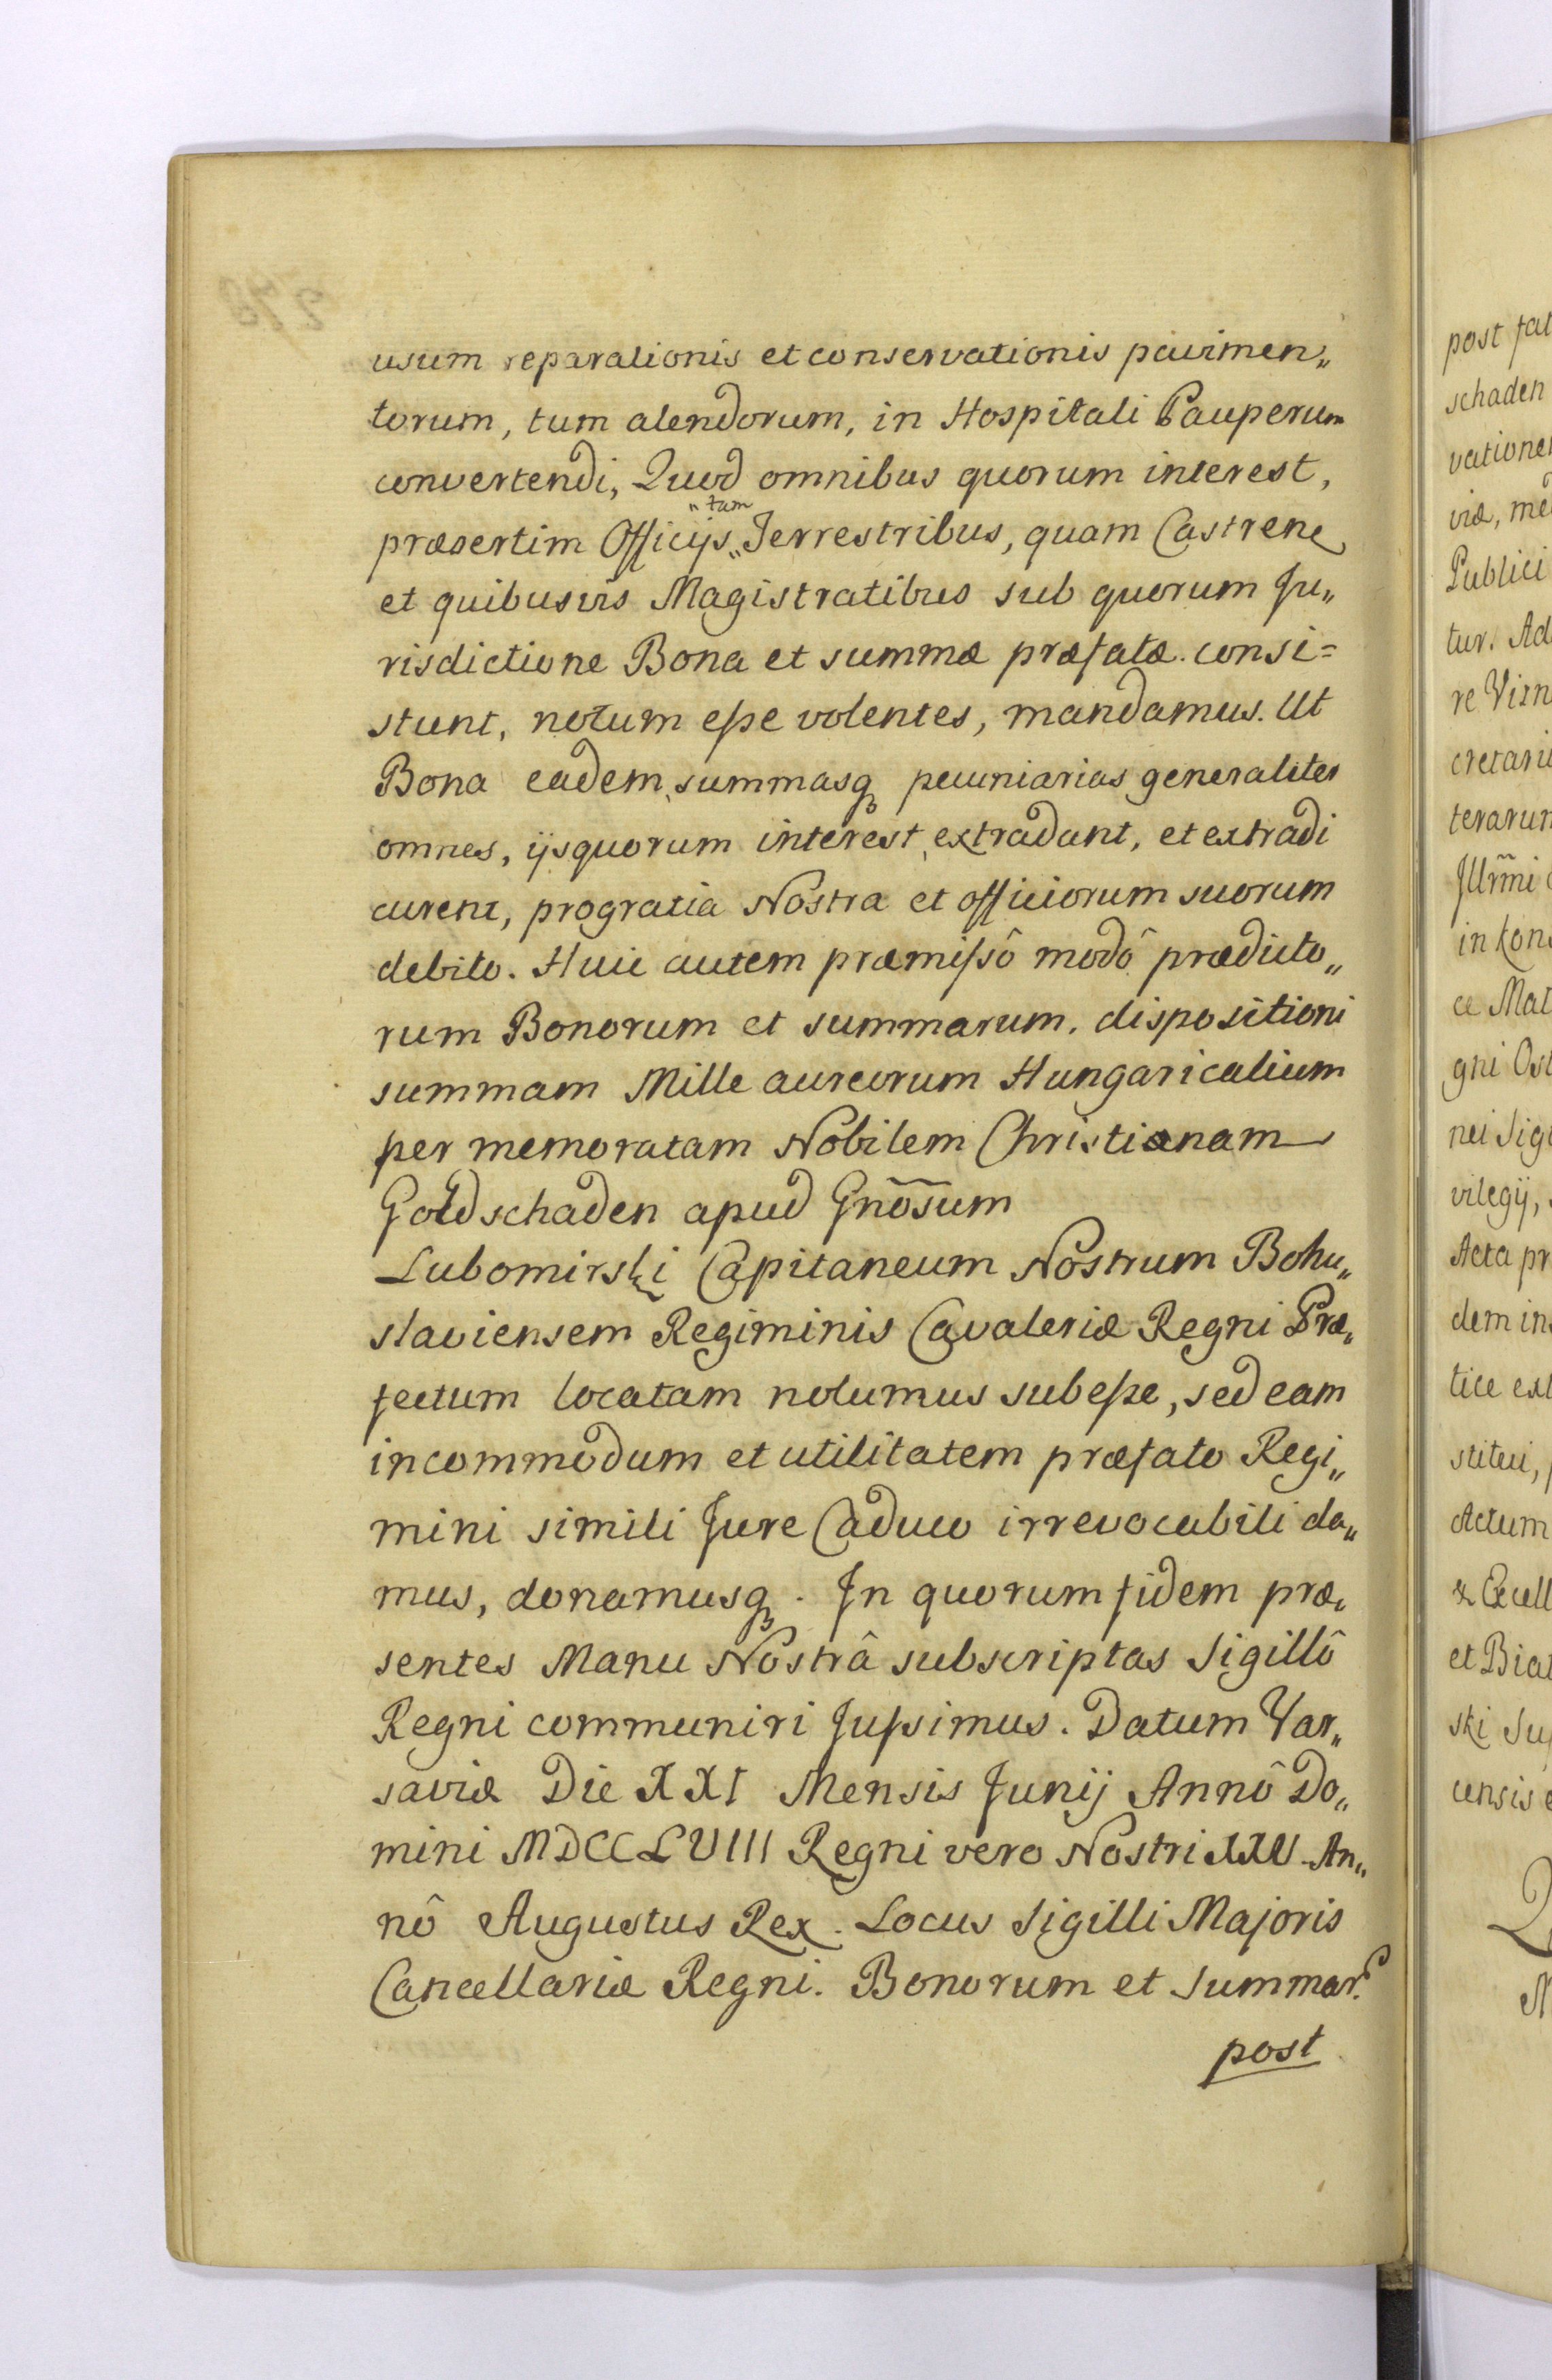 usum reparationis et conservationis pavimen„
torum, tum alendorum, in Hospitali Pauperum
convertendi, Quod omnibus quorum interest,
præsertim Officijs „tam„ Terrestribus, quam Castrene
et quibusvis Magistratibus sub quorum Ju„
risdictione Bona et summæ præfatæ consi=
stunt, notum eſse volentes, mandamus. Ut
Bona eadem, summasq pecuniarias generaliter
omnes, ijs quorum interest, extradant, et extradi
curent, pro gratia Nostra et officiorum suorum
debito. Huic autem præmiſsô modô prædicto„
rum Bonorum et summarum. dispositioni
summam Mille aureorum Hungaricalium
per memoratam Nobilem Christianam
Goldschaden apud Gnõsum
Lubomirski Capitaneum Nostrum Bohu„
slaviensem Regiminis Cavaleriæ Regni Præ„
fectum locatam nolumus subeſse, sed eam
in commodum et utilitatem præfato Regi„
mini simili Jure Caduco irrevocabili da„
mus, donamusq. In quorum fidem præ„
sentes Manu Nostrâ subscriptas Sigillô
Regni communiri Juſsimus. Datum Var„
saviæ Die XXI Mensis Junij Annô Do„
mini MDCCLVIII Regni vero Nostri XXV. An„
nô Augustus Rex. Locus Sigilli Majoris
Cancellariæ Regni. Bonorum et Summar.
post
post fat
schaden
vatione
viæ, me
Publici
tur. Ad
re Vien
cretari
terarum
Jllrm̃i
in Kon
ce Mat
gni Ost
nei Sigi
vilegij,
Acta pr
dem in
tice ext
stitui,
Actum
& Excell
et Bial
ski Sup
censis e